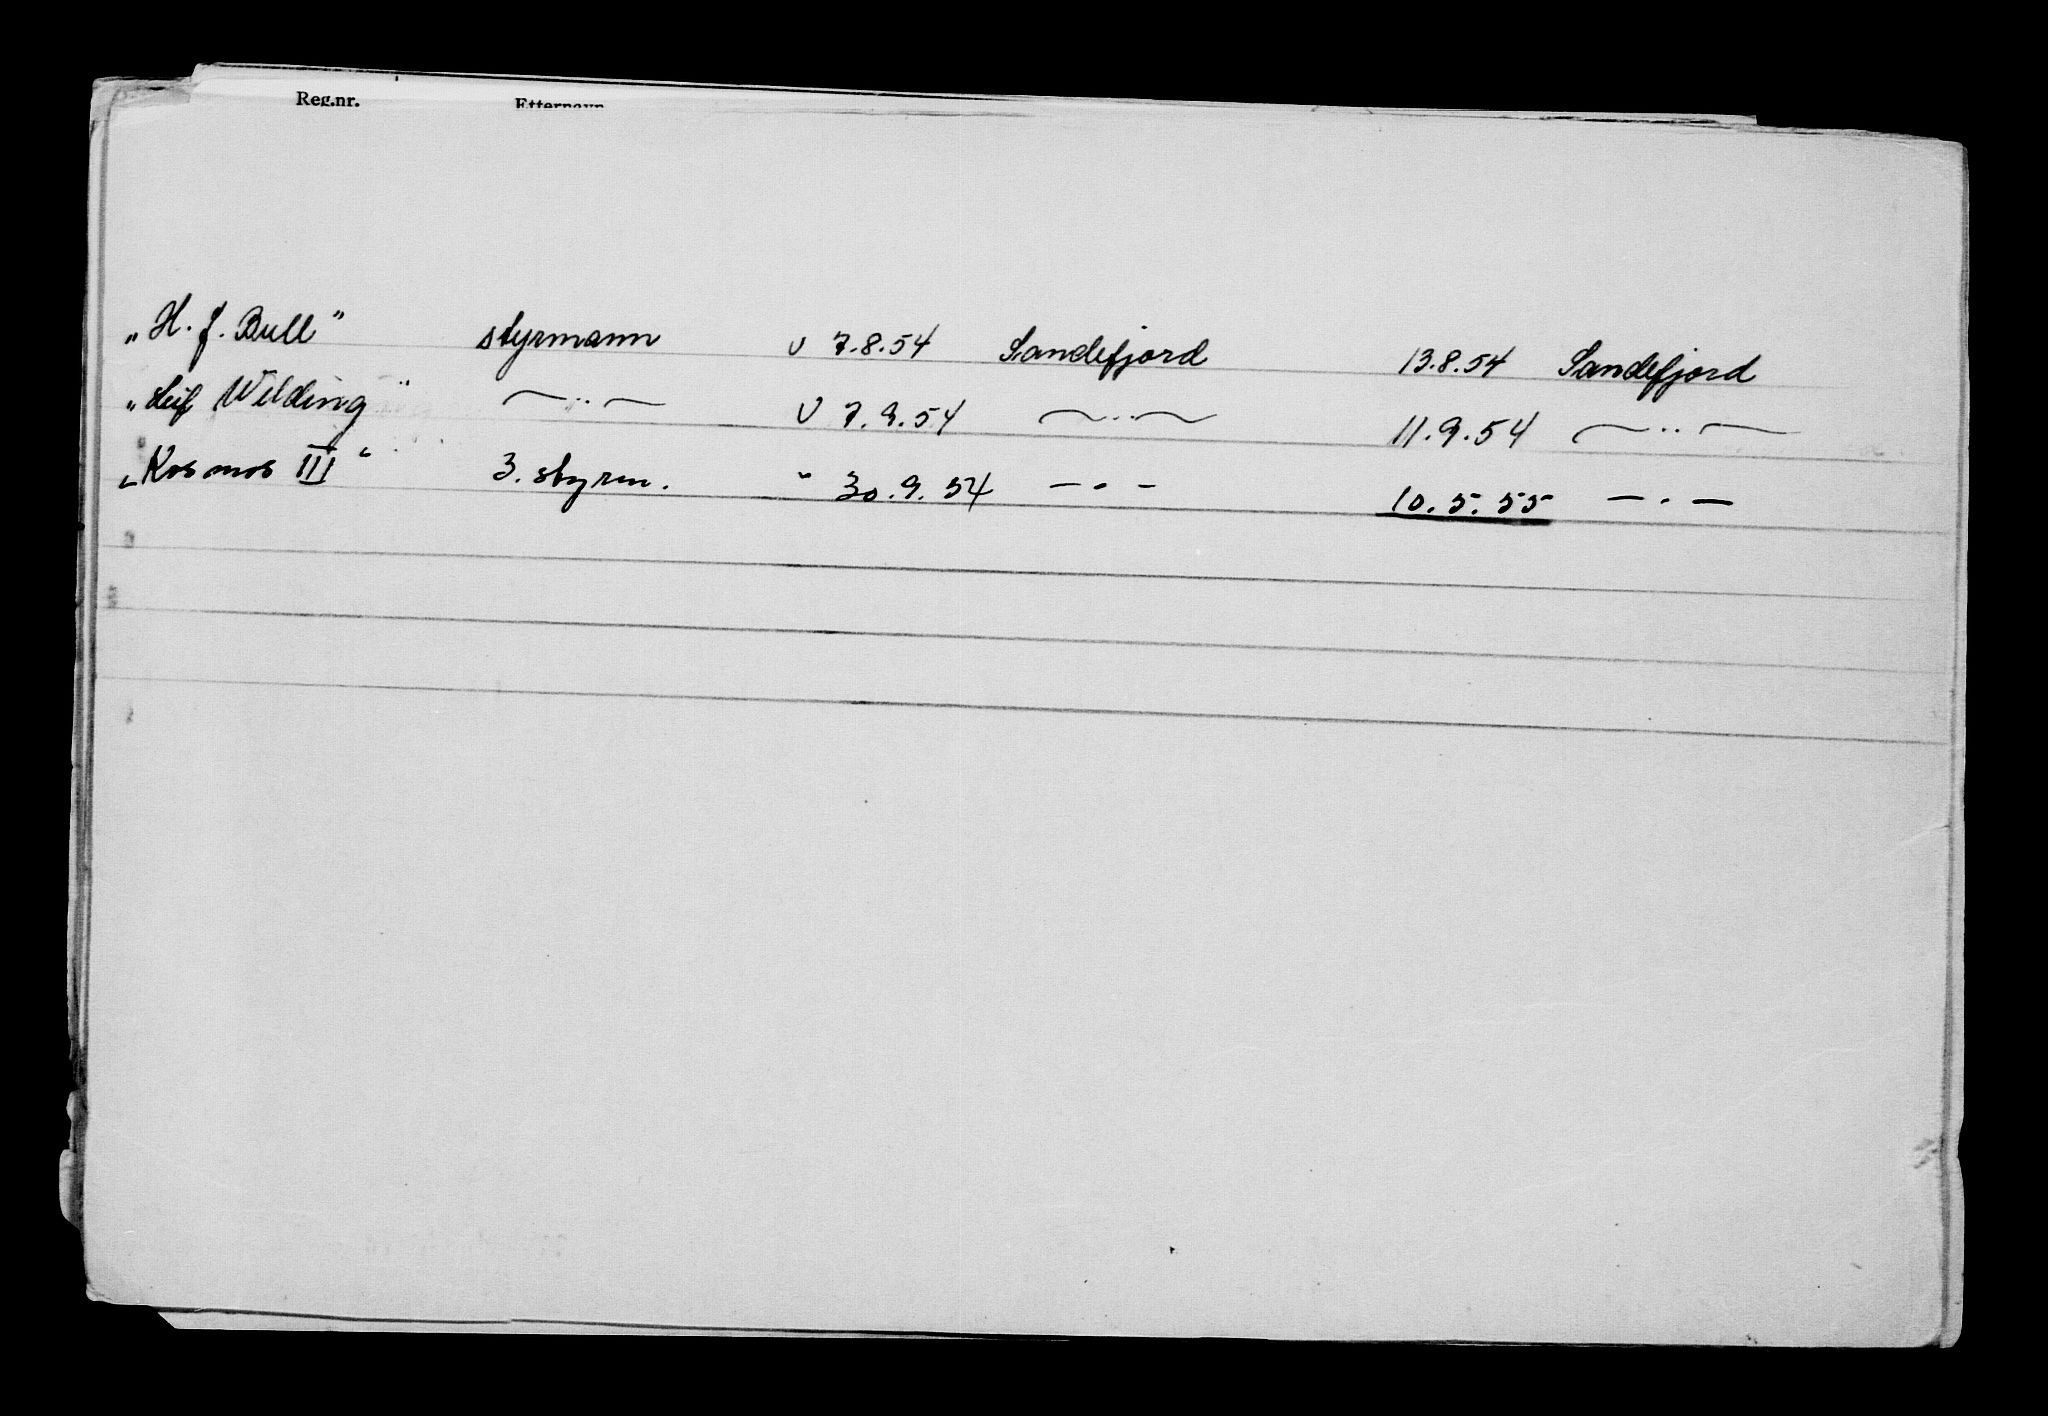 Reg.nr. Etternavn
„H. J. Bull” styrmann U 7.8.54 Sandefjord 13.8.54 Sandefjord
„Leif Wilding” —〃— U 7.9.54 —〃— 11.9.54 —〃—
„Kosmos III” 3. styrm. " 30.9.54 — " — 10.5.55 — " —